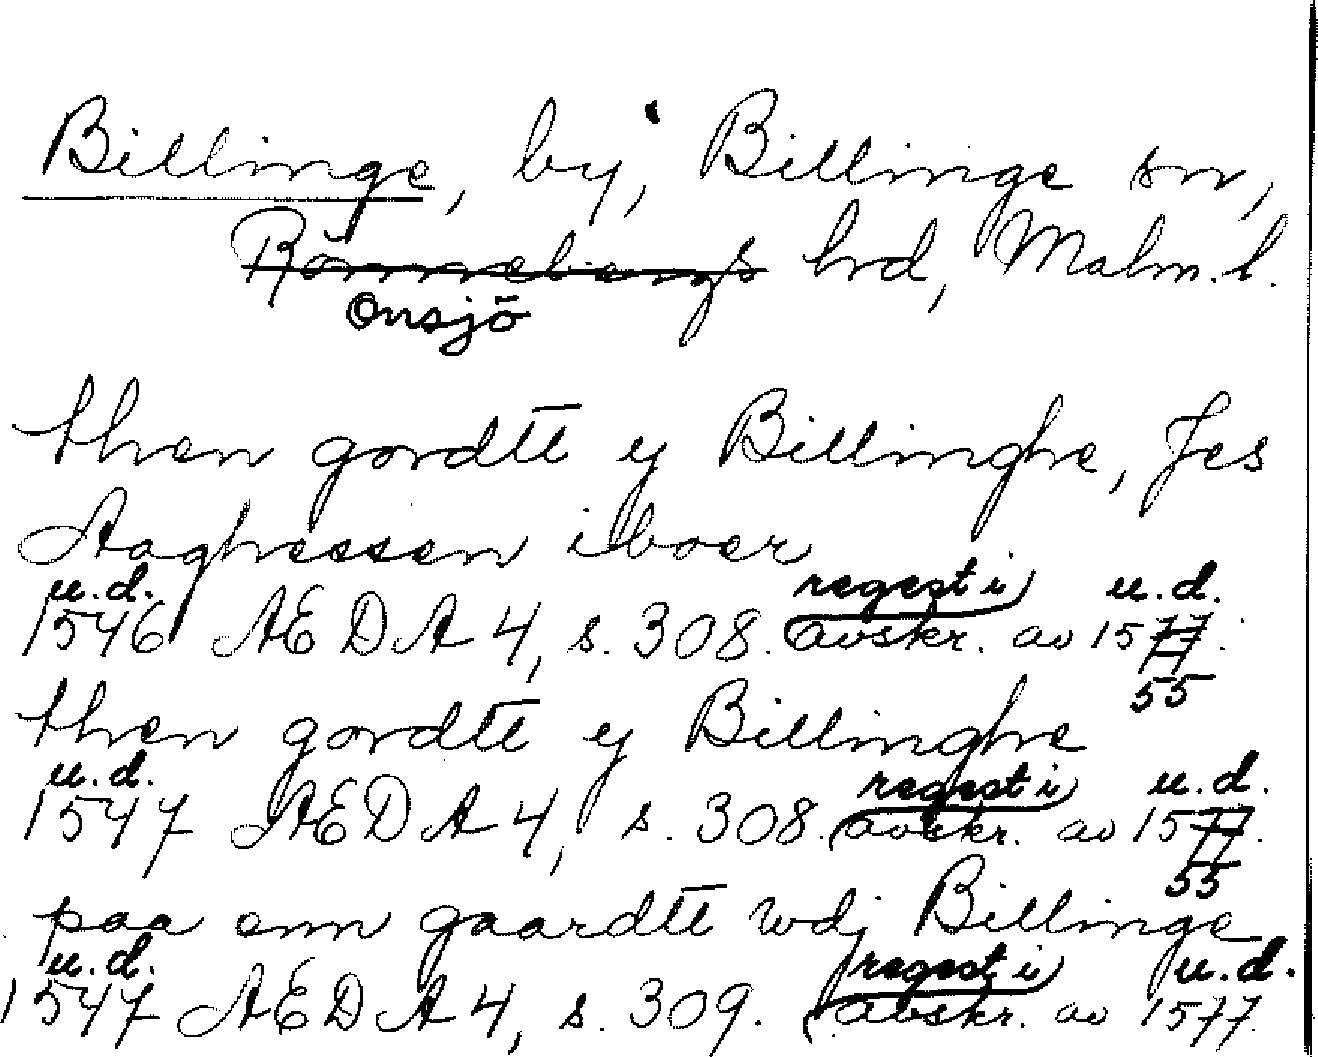 Billinge, by, Billinge sn,
Rönnebergs hrd, Malm.l.
Onsjö
then gordtt y Billinghe, Jes
Aaghessen iboer
u.d. regest i u.d.
1546 AEDA 4, s. 308. avskr. av 1577.
55
then gordtt y Billinghe
u.d. regest i u.d.
1547 AEDA 4, s. 308. avskr. av 1577.
55
paa enn gaardtt wdj Billinge
u.d. regest i u.d.
1547 AEDA 4, s. 309. avskr. av 1577.